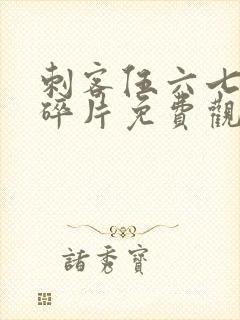 刺客伍六七
碎片免費觀
諸秀寶